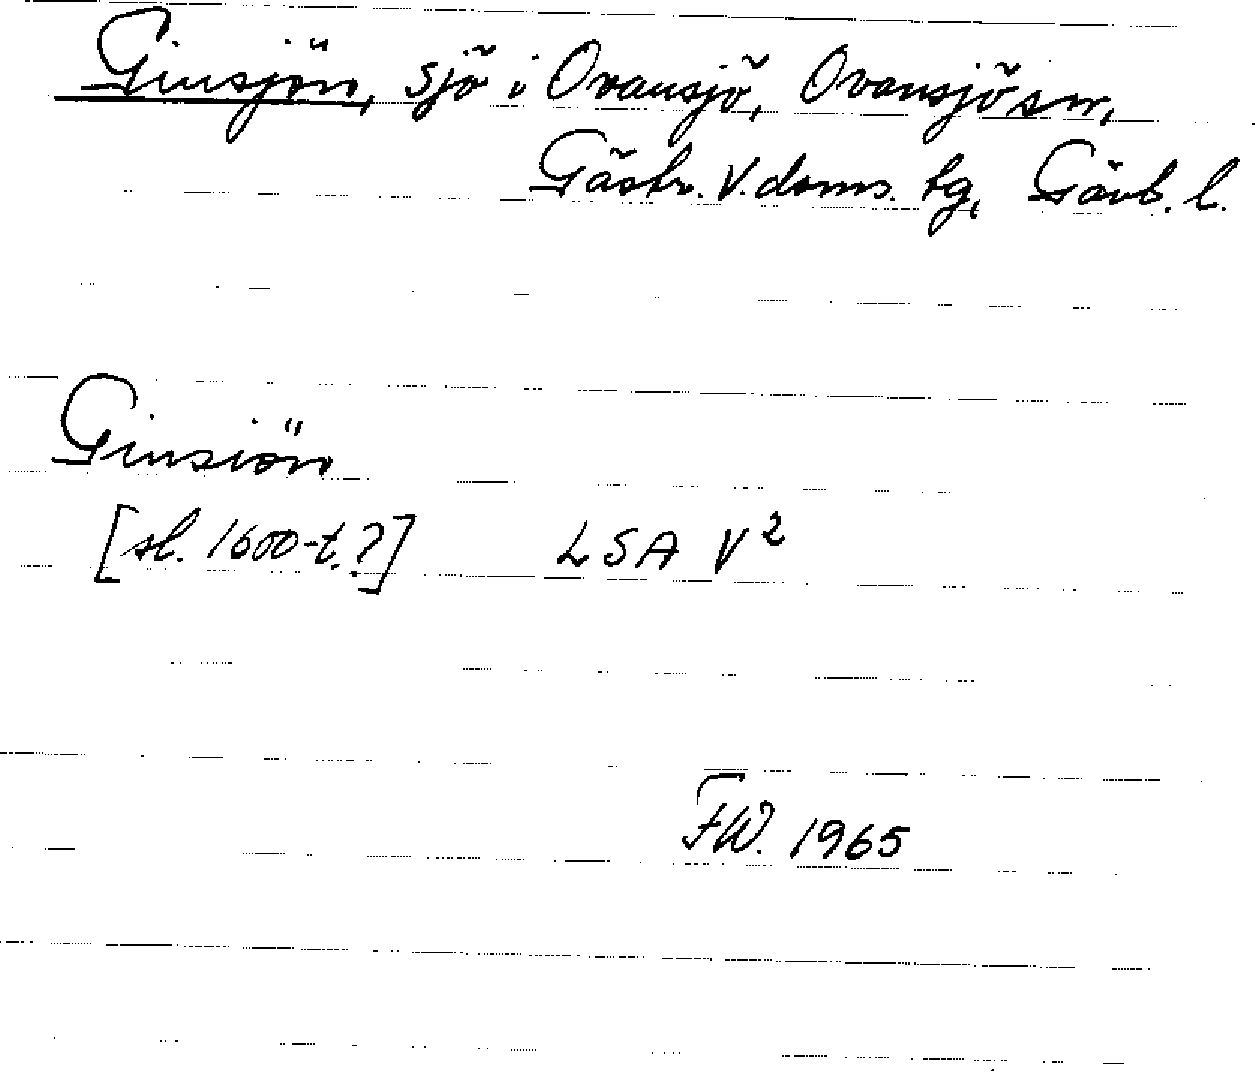 Ginsjön, sjö i Ovansjö, Ovansjö sn,
Gästr. V. doms. tg, Gävb. l.
Ginsiön
[sl. 1600-t.?] LSA V²
FW. 1965